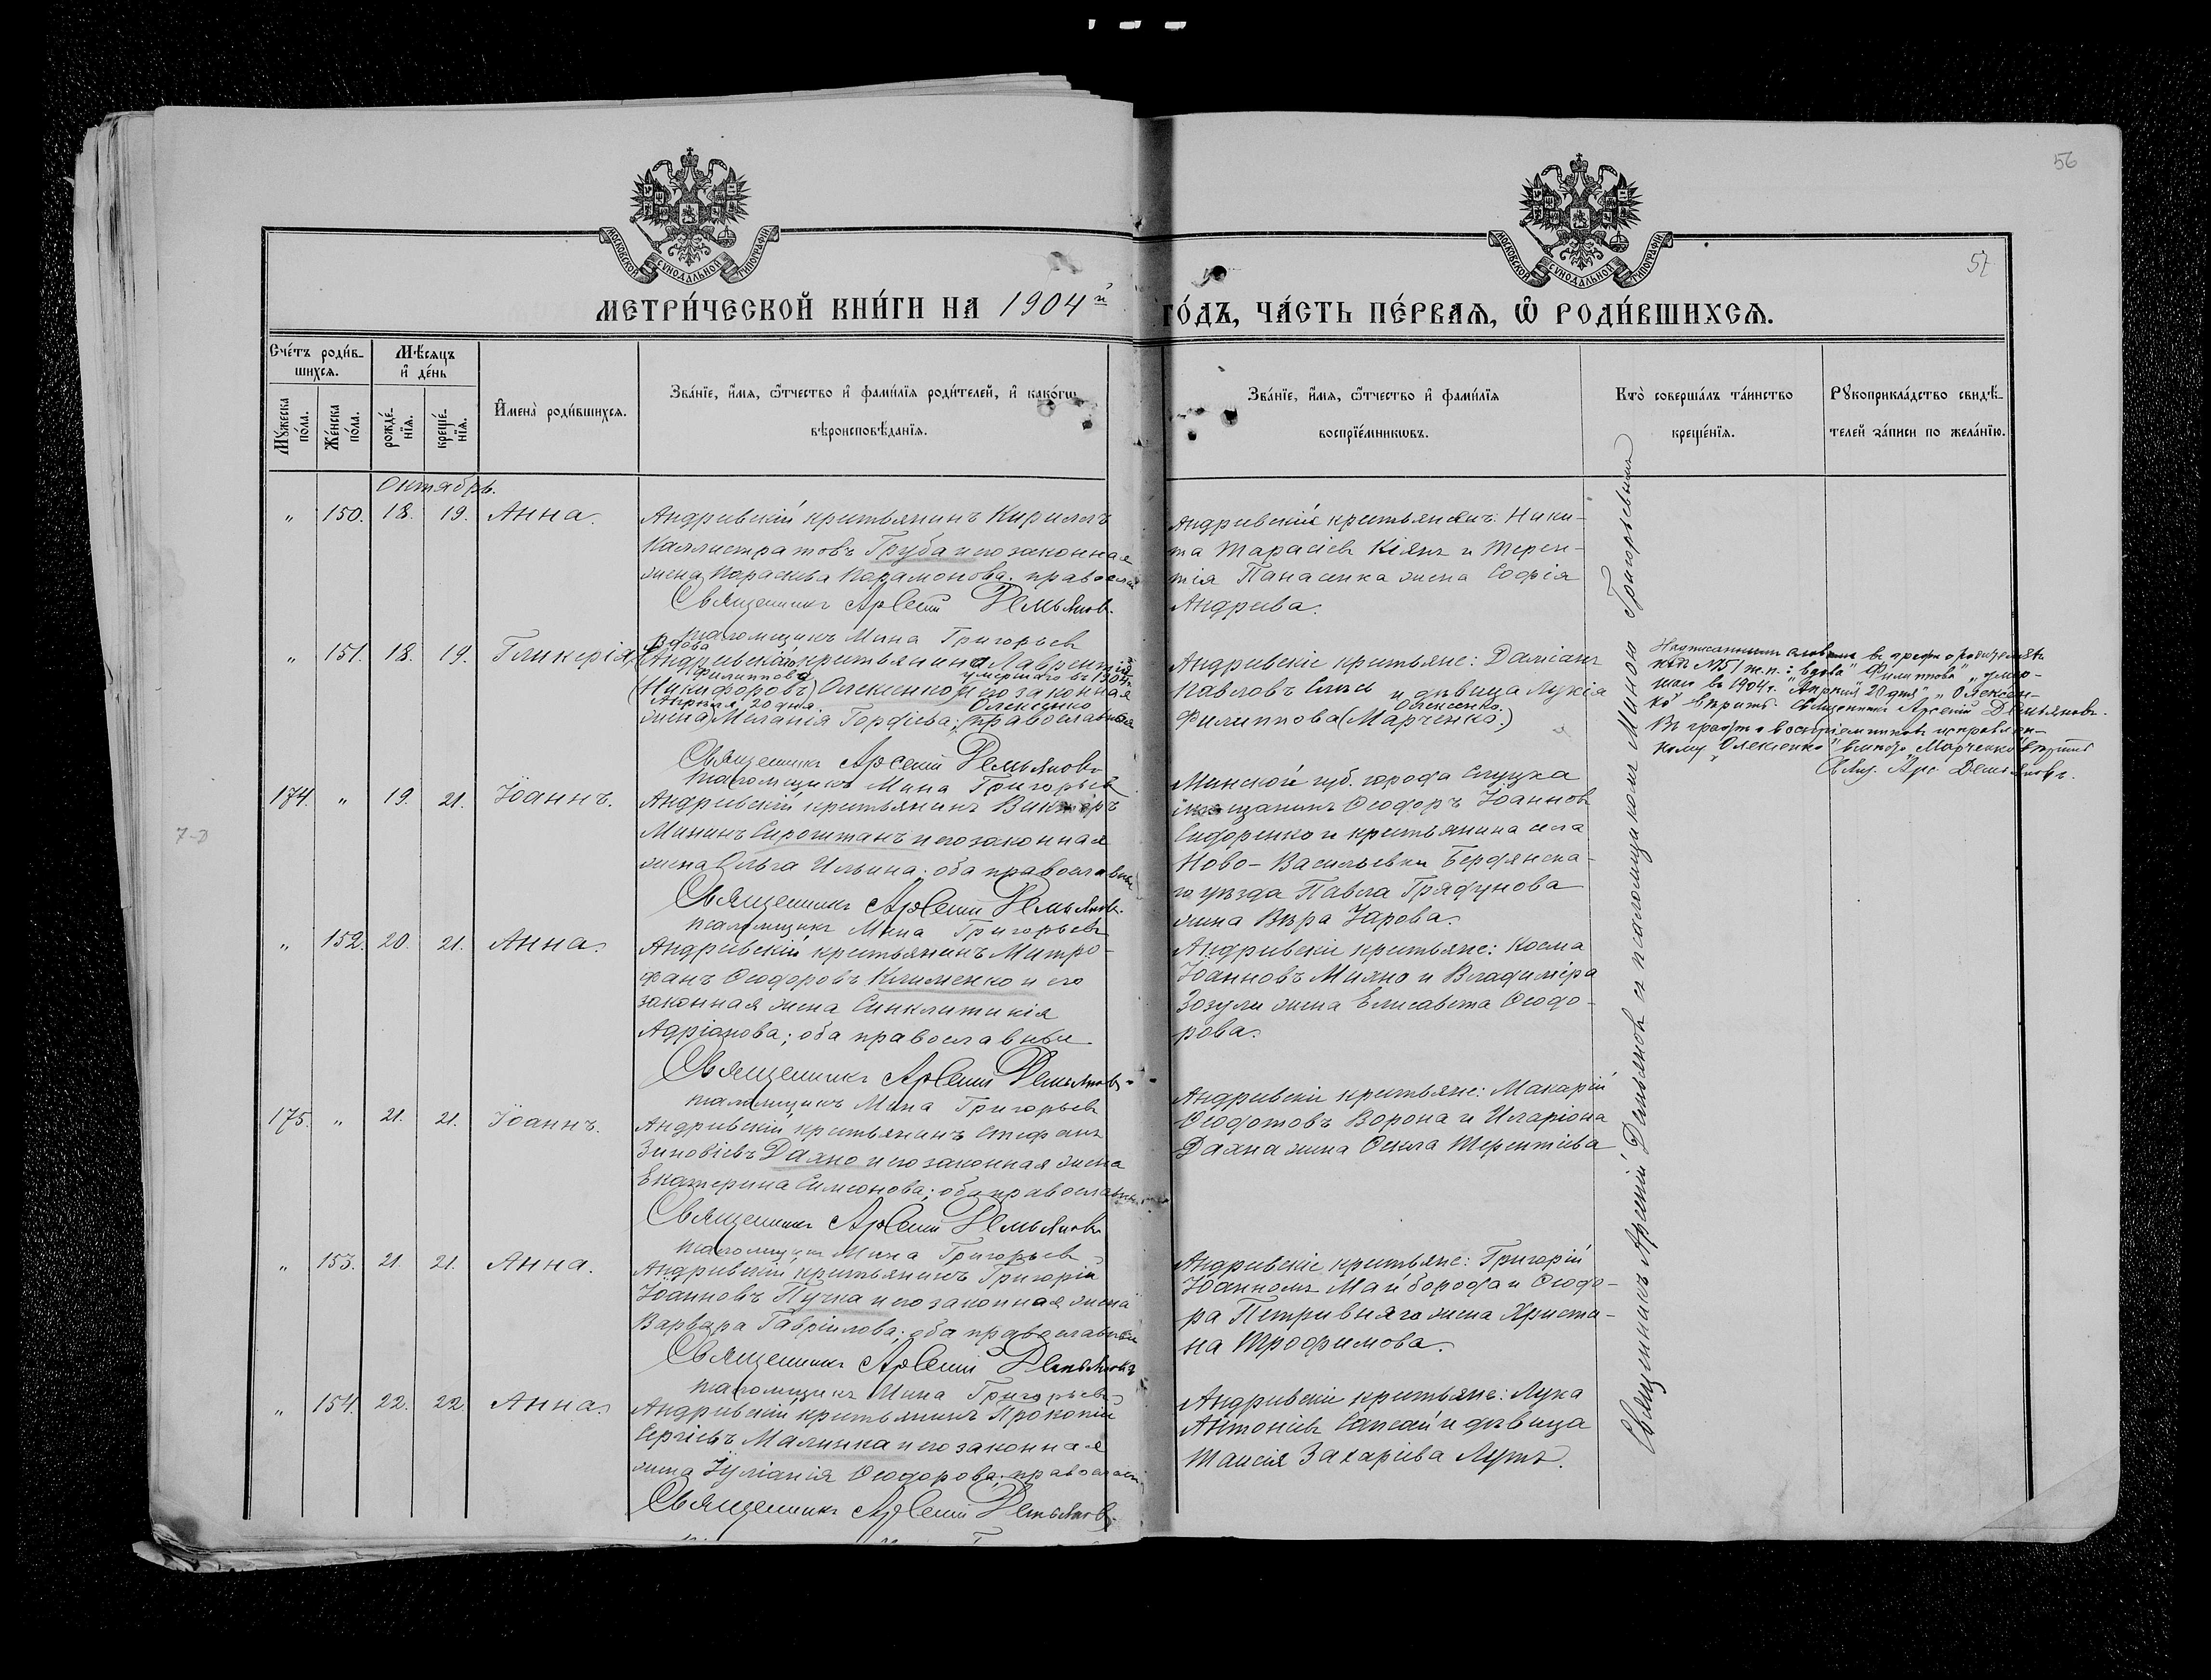 56
57
МОСКОВСКОЙ СѴНОДАЛЬНОЙ ТИПОГРАФІИ
МОСКОВСКОЙ СѴНОДАЛЬНОЙ ТИПОГРАФІИ
МЕТРИ́ЧЕСКОЙ КНИ́ГИ НА 1904й ГО́ДЪ, ЧА́СТЬ ПЕ́РВАѦ, Ѡ҆ РОДИ́ВШИХСѦ.
Сче́тъ роди́в-
шихсѧ.
Мꙋ́жеска по́ла.
Же́нска по́ла.
Мѣ́сѧцъ
и҆ де́нь
рожде́-
нїѧ.
креще́-
нїѧ.
И҆мена̀ роди́вшихсѧ.
Зва́нїе, и҆́мѧ, ѻ҆́тчество и҆ фами́лїѧ роди́телей, и҆ како́гѡ
вѣроисповѣ́данїѧ.
Зва́нїе, и҆́мѧ, ѻ҆́тчество и҆ фами́лїѧ
воспрїе́мникѡвъ.
Кто̀ соверша́лъ та́инство
креще́нїѧ.
Рꙋкоприкла́дство свидѣ́-
телей за́писи по жела́нїю.
Октябрь.
" 150. 18. 19. Анна.
Андреевскій крестьянинъ Кириллъ
Каллистратовъ Груба и его законная
жена Параскева Парамонова; православн
Священникъ Арсеній Демьяновъ
псаломщикъ Мина Григорьевъ
Андреевскіе крестьяне: Ники-
та Тарасіевъ Кіянъ и Терен-
тія Панасенка жена Софія
Андреева.
" 151. 18. 19. Гликерія
Вдова
Андреевскаго крестьянина Лаврентія
Филиппова умершаго въ 1904 г.
(Никифоровъ) Олексенко и его законная
Апрѣля, 20 дня. Олексенко
жена Меланія Гордіева; православная
Священникъ Арсеній Демьяновъ
псаломщикъ Мина Григорьевъ
Андреевскіе крестьяне: Даміанъ
Павловъ и дѣвица Лукія
Олексенко.
Филиппова (Марченко.)
Надписаннымъ словамъ въ графѣ о родителяхъ
№151 т.п.: "вдова" "Филиппова" "умер-
шаго въ 1904 г. Апрѣля 20 дня" "Олексен-
ко" вѣрить. Священникъ Арсеній Демьяновъ.
Въ графѣ о воспріемникахъ исправлен-
ному "Олексенко" вмѣсто "Марченко" вѣрить
Свящ. Арс. Демьяновъ.
174. " 19. 21. Іоаннъ.
Андреевскій крестьянинъ Викторъ
Мининъ Сироштанъ и его законная
жена Ольга Ильина; оба православные
Священникъ Арсеній Демьяновъ
псаломщикъ Мина Григорьевъ
Минской губ. города Слуцка
мѣщанинъ Ѳеодоръ Іоанновъ
Сидоренко и крестьянина села
Ново-Васильевки Бердянска-
го уѣзда Павла Грядунова
жена Вѣра
" 152. 20. 21. Анна.
Андреевскій крестьянинъ Митро-
фанъ Ѳеодоровъ Клименко и его
законная жена Синклитикія
Адріанова; оба православные
Священникъ Арсеній Демьяновъ
псаломщикъ Мина Григорьевъ
Андреевскіе крестьяне: Косма
Іоанновъ Михно и Владиміра
Зозули жена Елисавета Ѳеодо-
рова.
175. " 21. 21. Іоаннъ.
Андреевскій крестьянинъ Стефанъ
Зиновіевъ Дахно и его законная жена
Екатерина Симеонова; оба православные
Священникъ Арсеній Демьяновъ
псаломщикъ Мина Григорьевъ
Андреевскіе крестьяне: Макарій
Ѳеодотовъ Ворона и Иларіона
Дахна жена Ѳекла Терентіева
" 153. 21. 21. Анна.
Андреевскій крестьянинъ Григорій
Іоанновъ Пучка и его законная жена
Варвара Гавріилова; оба православные
Священникъ Арсеній Демьяновъ
псаломщикъ Мина Григорьевъ
Андреевскіе крестьяне: Григорій
Іоанновъ Майборода и Ѳеодо-
ра Петривняго жена Христи-
на Трофимова.
" 154. 22. 22 Анна.
Андреевскій крестьянинъ Прокопій
Сергіевъ Малинка и его законная
жена Іуліанія Ѳеодорова; православн.
Священникъ Арсеній Демьяновъ
Андреевскіе крестьяне: Лука
Антоніевъ и дѣвица
Таисія Захаріева Лутъ.
Священникъ Арсеній Демьяновъ съ псаломщикомъ Миною Григорьевымъ
7-D